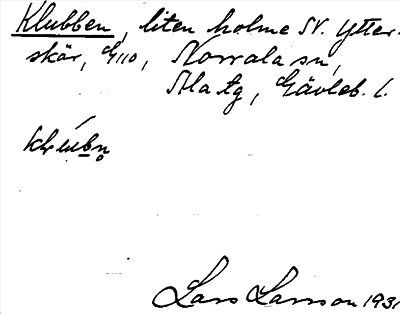 Klubben, liten holme SV. Ytter-
skär, G110, Norrala sn,
Ala tg, Gävleb. l.
Lars Larsson 1931